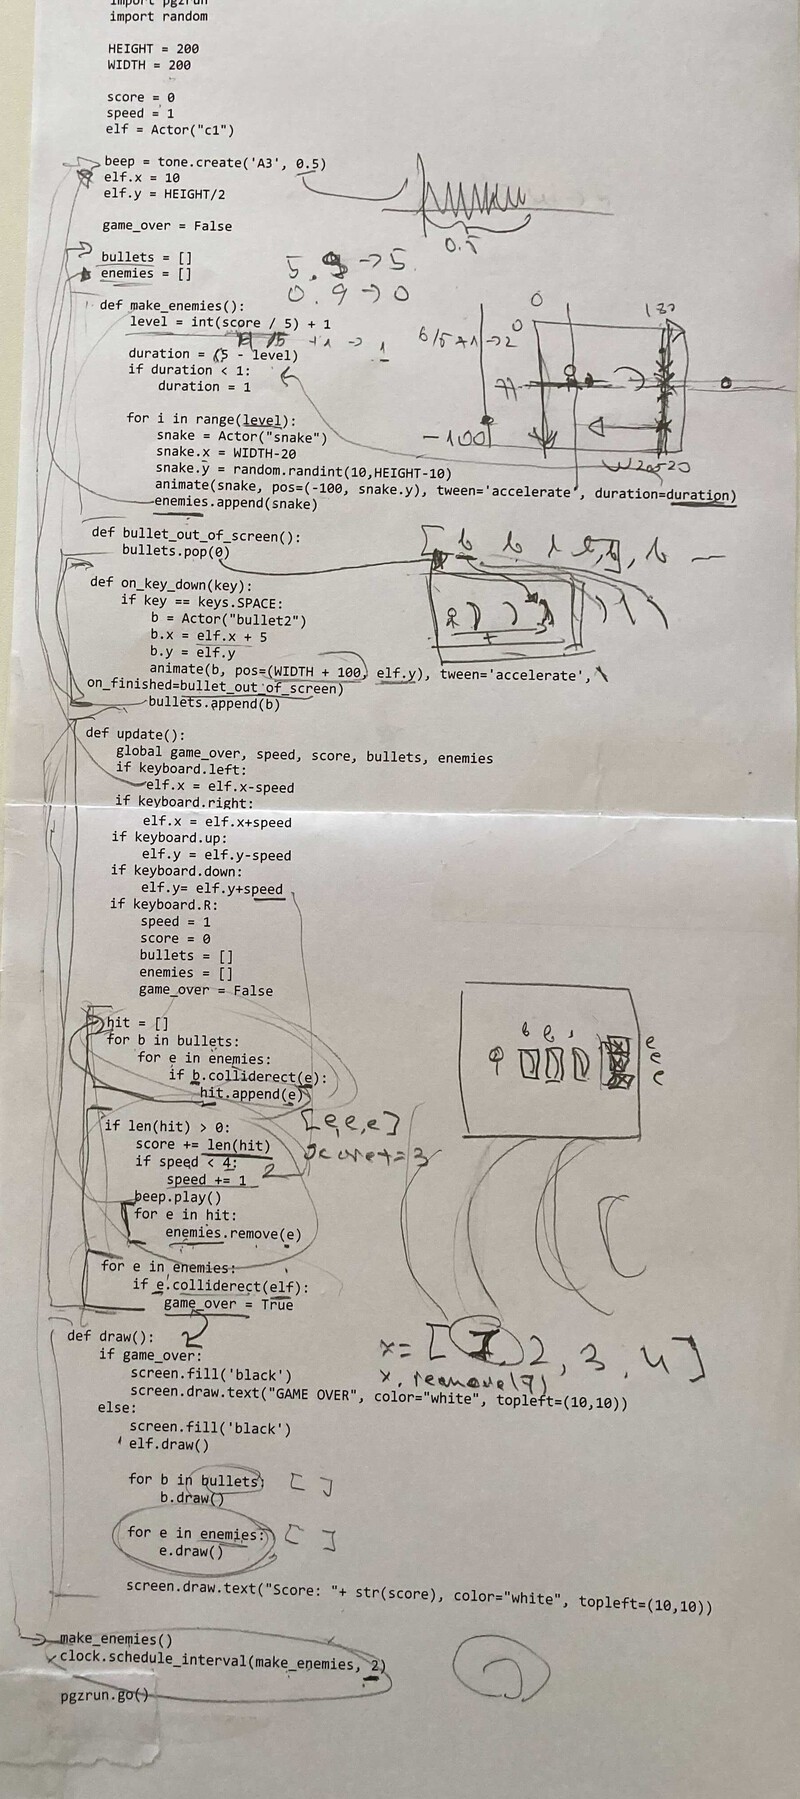 import pgzrun
import random
HEIGHT = 200
WIDTH = 200
score = 0
speed = 1
elf = Actor("c1")
beep = tone.create('A3', 0.5)
elf.x = 10
elf.y = HEIGHT/2
0.5
game_over = False
bullets = []
enemies = []
5.9 → 5
0.9 → 0
def make_enemies():
level = int(score / 5) + 1
/5 +1 → 1
6/5+1 → 2
0
0
180
duration = (5 - level)
if duration < 1:
duration = 1
77
-100
for i in range(level):
snake = Actor("snake")
snake.x = WIDTH-20
snake.y = random.randint(10,HEIGHT-10)
animate(snake, pos=(-100, snake.y), tween='accelerate', duration=duration)
enemies.append(snake)
def bullet_out_of_screen():
bullets.pop(0)
def on_key_down(key):
if key == keys.SPACE:
b = Actor("bullet2")
b.x = elf.x + 5
b.y = elf.y
animate(b, pos=(WIDTH + 100, elf.y), tween='accelerate',
on_finished=bullet_out_of_screen)
bullets.append(b)
def update():
global game_over, speed, score, bullets, enemies
if keyboard.left:
elf.x = elf.x-speed
if keyboard.right:
elf.x = elf.x+speed
if keyboard.up:
elf.y = elf.y-speed
if keyboard.down:
elf.y= elf.y+speed
if keyboard.R:
speed = 1
score = 0
bullets = []
enemies = []
game_over = False
hit = []
for b in bullets:
for e in enemies:
if b.colliderect(e):
hit.append(e)
e
e
e
if len(hit) > 0:
[e,e,e]
score += len(hit)
score+=3
if speed < 4:
2
speed += 1
beep.play()
for e in hit:
enemies.remove(e)
for e in enemies:
if e.colliderect(elf):
game_over = True
def draw():
x= [ 7, 2, 3, 4 ]
if game_over:
screen.fill('black')
x.remove(7)
screen.draw.text("GAME OVER", color="white", topleft=(10,10))
else:
screen.fill('black')
elf.draw()
for b in bullets: [ ]
b.draw()
for e in enemies: [ ]
e.draw()
screen.draw.text("Score: "+ str(score), color="white", topleft=(10,10))
make_enemies()
clock.schedule_interval(make_enemies, 2)
pgzrun.go()